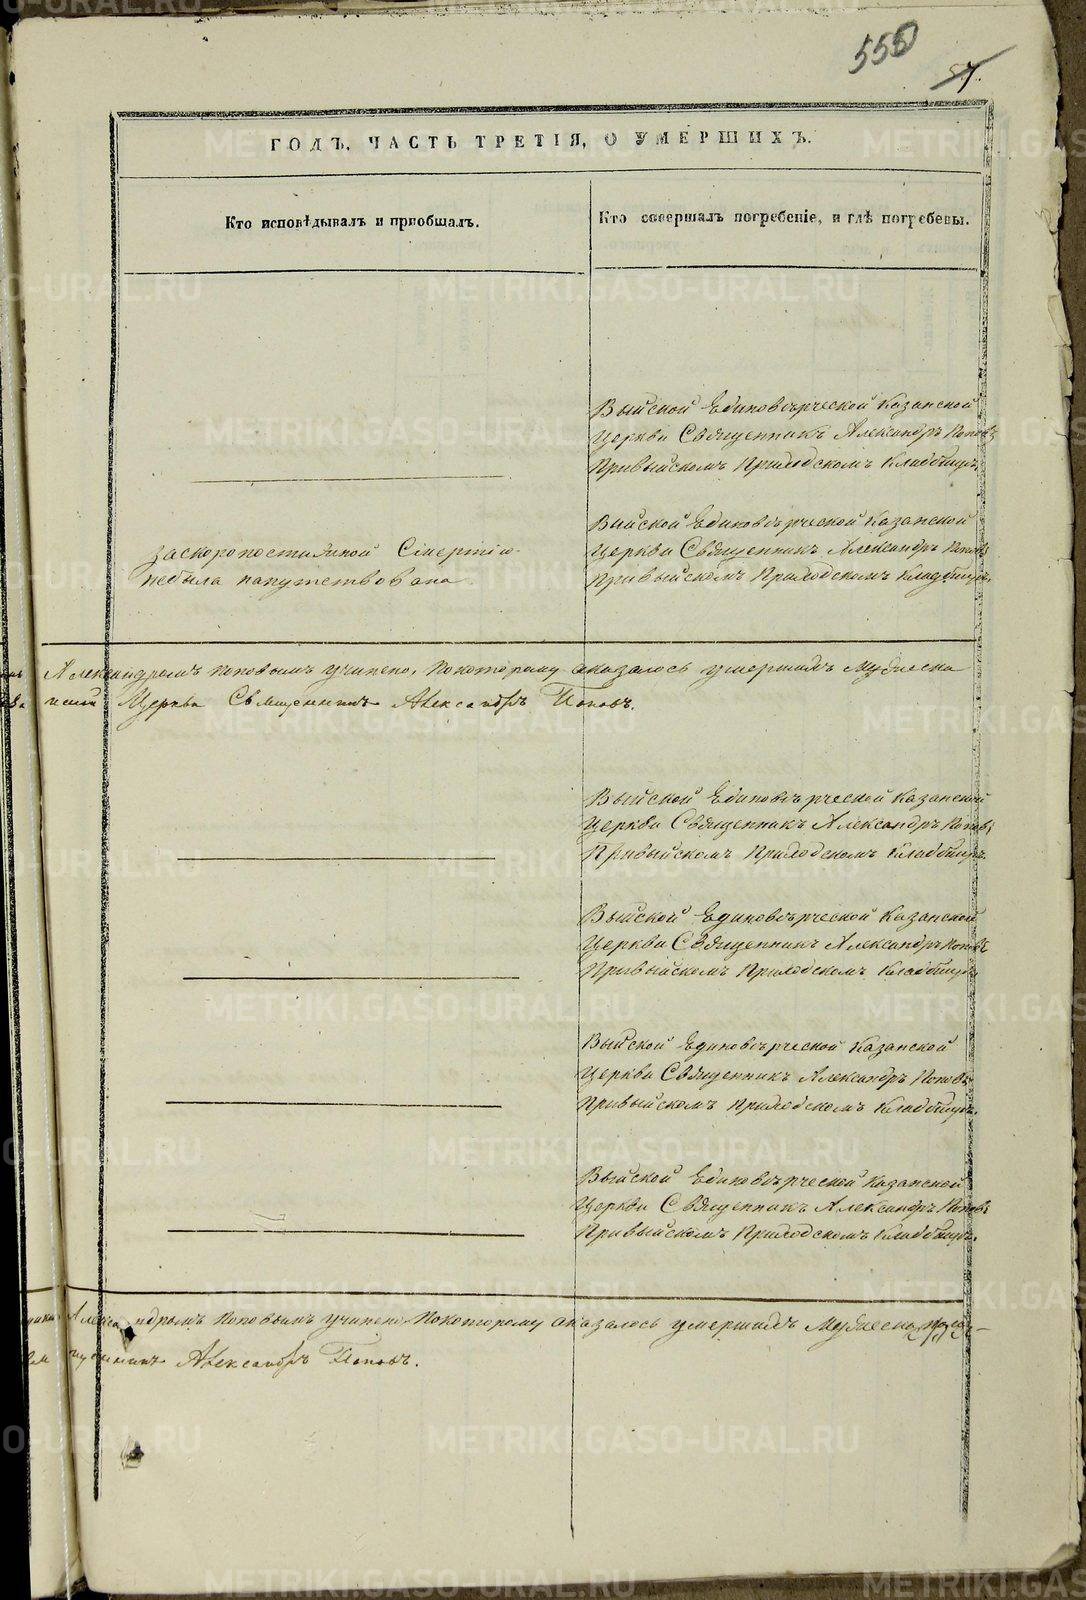 555
57.
ГОДЪ, ЧАСТЬ ТРЕТІЯ, О УМЕРШИХЪ.
Кто исповѣдывалъ и пріобщалъ.
Кто совершалъ погребеніе, и гдѣ погребены.
Выйской Единовѣрческой Казанской
Церкви Священникъ Александръ Поповъ
Привыйскомъ Приходскомъ Кладбищѣ.
заскоропостижной Смертію
небыла напутствована
Выйской Единовѣрческой Казанской
Церкви Священникъ Александръ Поповъ
Привыйскомъ Приходскомъ Кладбищѣ.
Александромъ Поповымъ учинено, Покоторому оказалось умершихъ Мужеска
Церкви Священникъ Александръ Поповъ.
Выйской Единовѣрческой Казанской
Церкви Священникъ Александръ Поповъ
Привыйскомъ Приходскомъ Кладбищѣ.
Выйской Единовѣрческой Казанской
Церкви Священникъ Александръ Поповъ
Привыйскомъ Приходскомъ Кладбищѣ
Выйской Единовѣрческой Казанской
Церкви Священникъ Александръ Поповъ
Привыйскомъ Приходскомъ Кладбищѣ.
Выйской Единовѣрческой Казанской
Церкви Священникъ Александръ Поповъ
Привыйскомъ Приходскомъ Кладбищѣ.
Александромъ Поповымъ учинено Покоторому оказалось умершихъ Мужеска
щенникъ Александръ Поповъ.
METRIKI.GASO-URAL.RU